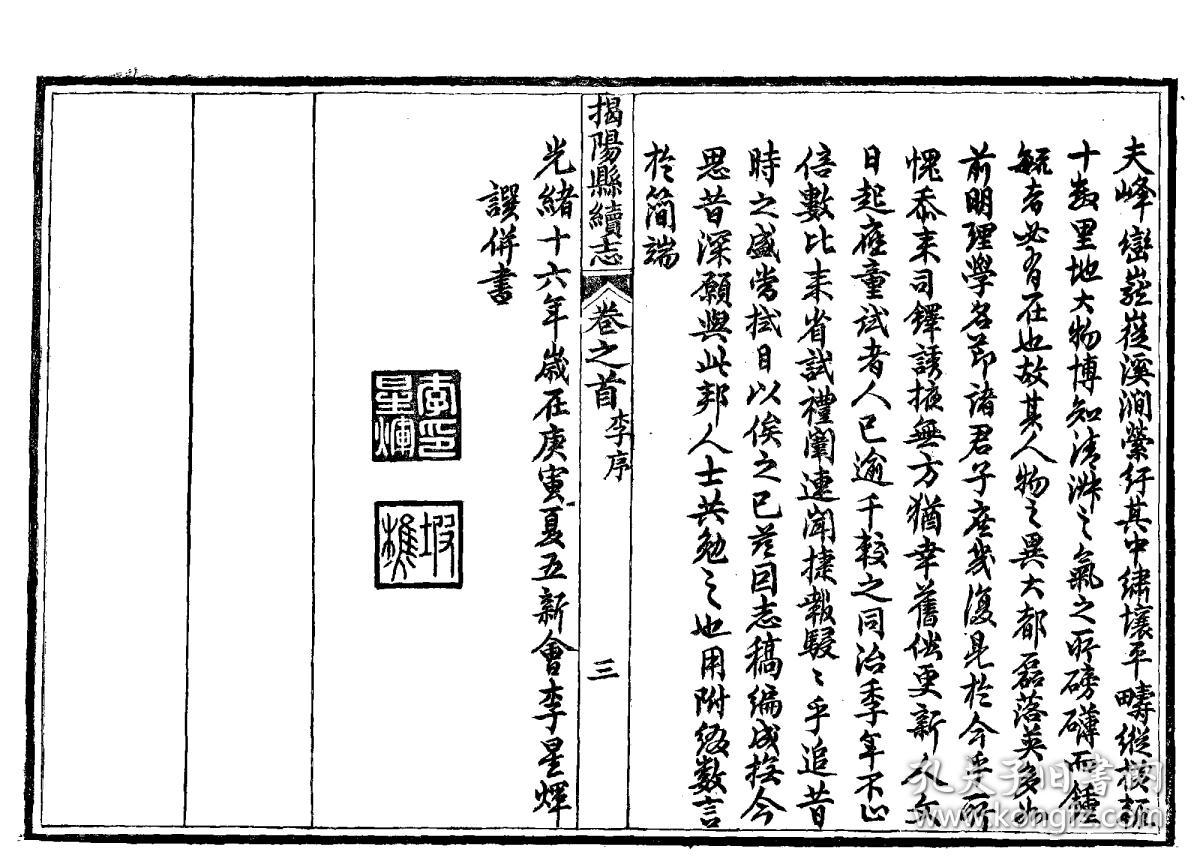 夫峰巒巃嵸溪澗縈紆其中繡壤平疇縱橫輒
十數里地大物博知清淑之氣之所磅礴而鍾
毓者必有在也故其人物之異大都磊落英多如
前明理學名節諸君子庶幾復見於今乎所
愧忝來司鐸誘掖無方猶幸舊侶更新人文
日起應童試者人已逾千較之同治季年不止
倍數比來省試禮闈連聞捷報駸〻乎追昔
時之盛嘗拭目以俟之已茲因志稿編成撫今
思昔深願與此邦人士共勉之也用附綴數言
於簡端
揭陽縣續志
卷之首
李序
三
光緒十六年歲在庚寅夏五新會李星煇
譔併書
李印星煇
椵樵
孔夫子旧书网
www.kongfz.com